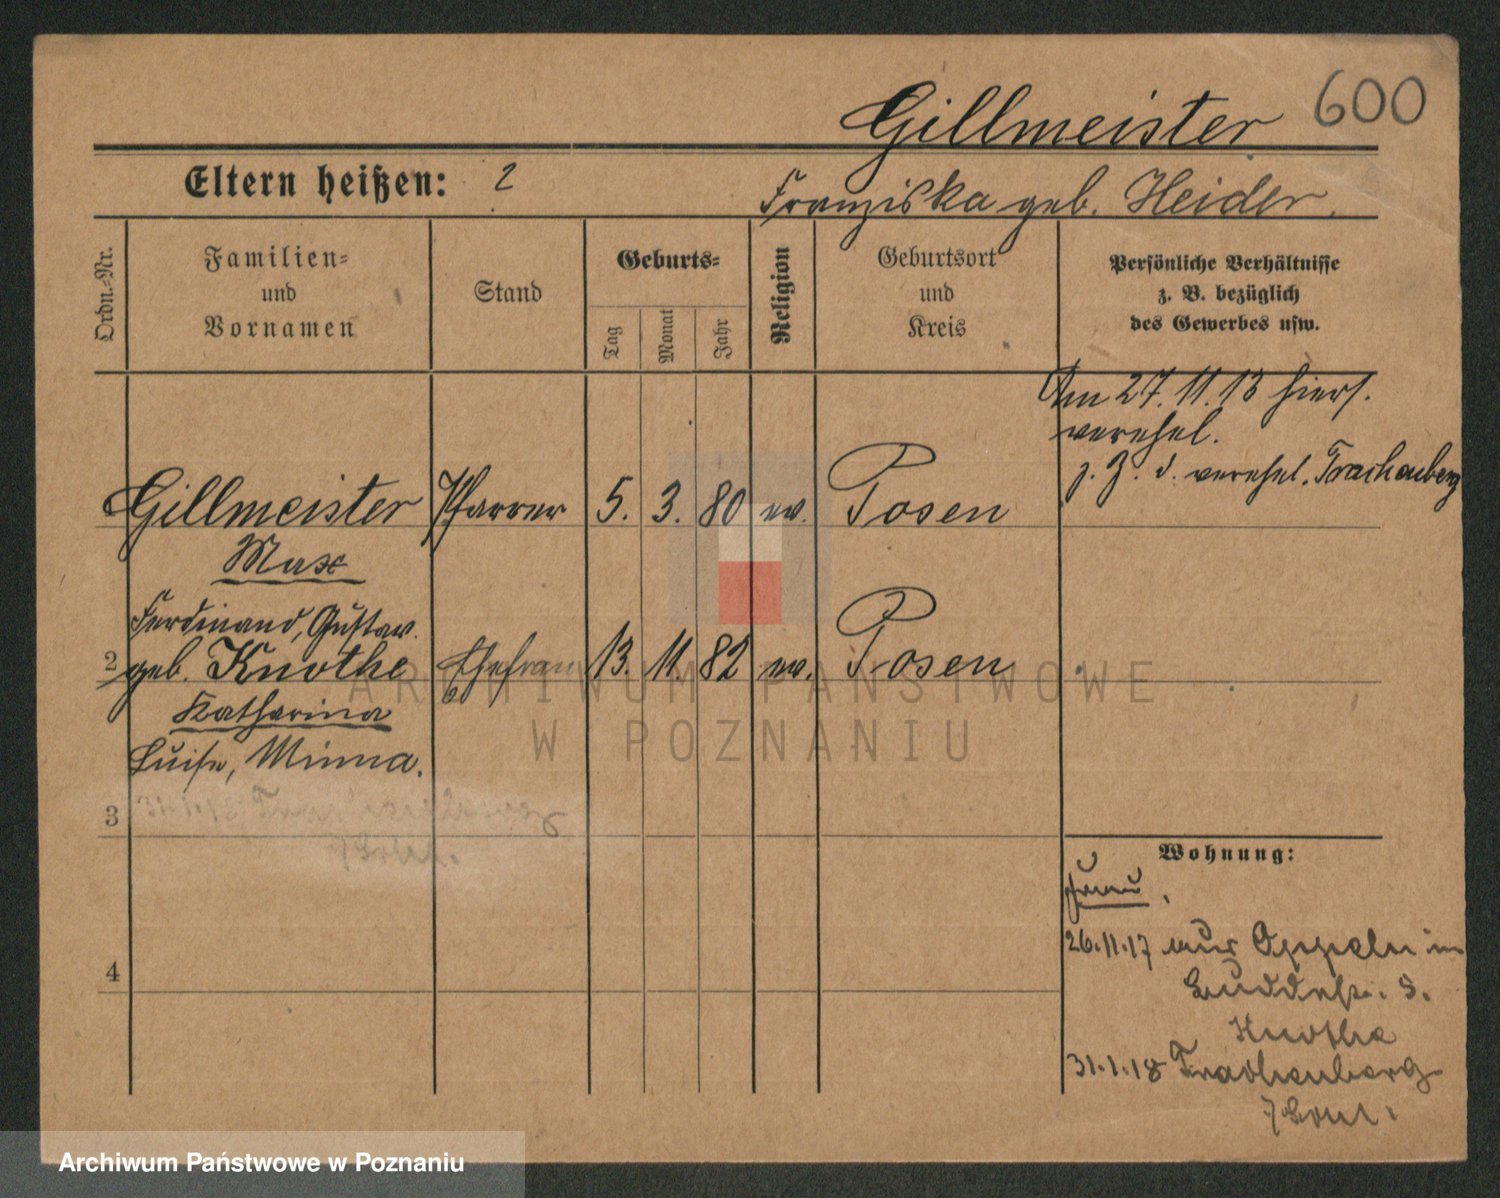 Gillmeister 600
Eltern heißen: 2
Franziska geb. Heider.
Ordn.-Nr.
Familien-
und
Vornamen
Stand
Geburts-
Tag
Monat
Jahr
Religion
Geburtsort
und
Kreis
Persönliche Verhältnisse
z. B. bezüglich
des Gewerbes usw.
Am 27.11.13 hiers.
verehel.
z. Z. d. verehel. Trachenberg
Gillmeister Pfarrer 5. 3. 80 ev. Posen
Max
Ferdinand, Gustav.
2 geb. Knothe Ehefrau 13. 11. 82 ev. Posen
Katharina
Luise, Minna.
3
4
Wohnung:
Frau
26.11.17 aus Oppeln in
Knothe
31.1.18 Trachenberg
ARCHIWUM PAŃSTWOWE
W POZNANIU
Archiwum Państwowe w Poznaniu